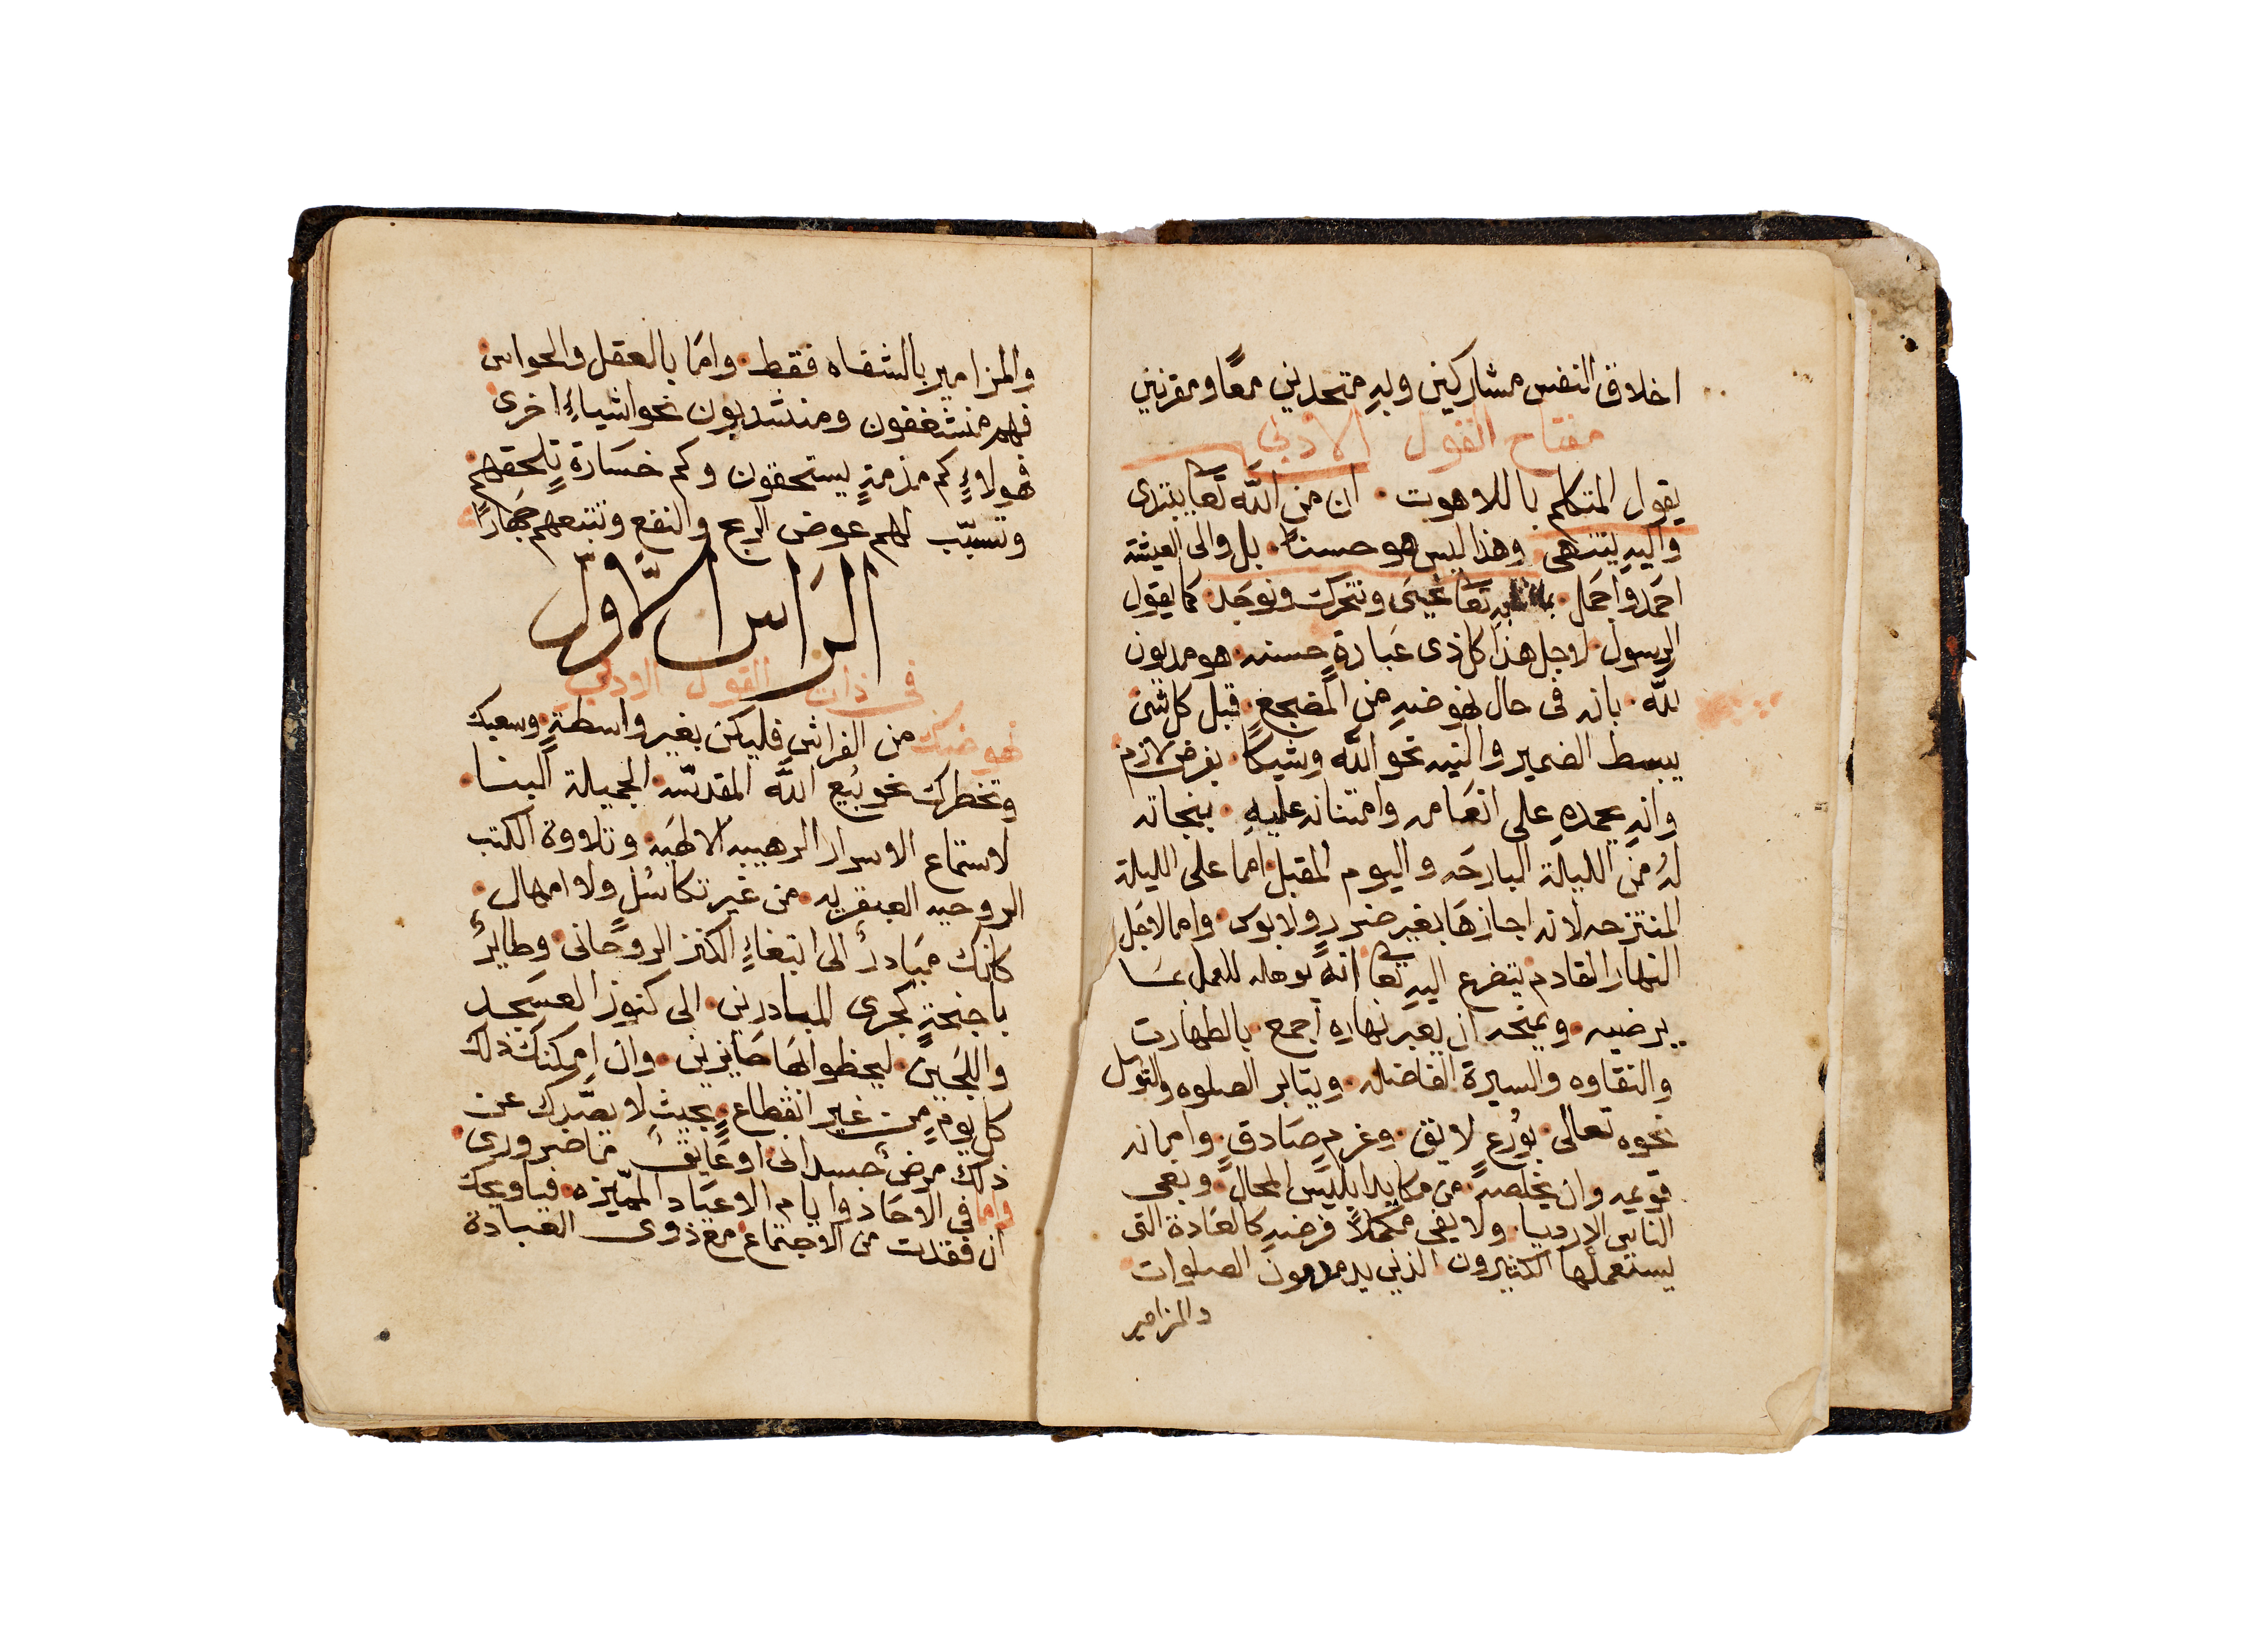 اخلاق النفس مشاركين وبهِ متحدين معًا ومقرنين
مفتاح القول الادبي
يقول المتكلم باللاهوت · ان من اللّه تعا يبتدى
واليهِ ينتهى وهذا ليس هو حسنًا · بل والى العيشة
احمد واجمل · بهِ تعا نحيَى ونتحرك ونوجَد · كما يقول
الرسول · لاجل هذا كل ذى عبادةٍ حسنه · هو مديون
للّه · بانه فى حال نهوضهِ من المضجع · قبل كل شى
يبسط الضمير والنيه نحو اللّه وشيكًا · بفرض لازم
وانهِ يحمدهِ على انعَامه وامتنانه عليهِ · بنجاته
لهُ من الليلة البارحَه واليوم المقبل · اما على الليلة
المنتزحه لانه اجازهَا بغير ضررٍ ولا بوس · واما لاجَل
النهار القادم يتضرع اليهِ تعا انهُ يوهله للعمل بمَا
يرضيه · ويمنحه ان يعبر نهاره اجمع · بالطهارت
والنقاوه والسيرة الفاضله · ويثابر الصلوه والتوسل
نحوه تعالى · بوَرَعٍ لايق · وعزمٍ صَادقٍ · وامانه
قويمه وان يخلصهُ · من مكايد ابليسَ المحال · وبغى
الناس الارديا · ولا يفى مكملاً فرضهِ كالعَادة التى
يستعملها الكثيرون الذين يدمدمون الصلوات
والمزامير
والمزامير بالشفاه فقط · وامَا بالعقل والحواس
فهم منشغفون ومنشدبون نحو اشياءٍ اخرى
فهولاءِ كم مذمةٍ يستحقون وكم خسَارةٍ تلحقهم
وتسبّب لهم عوض الربح والنفع وتتبعهم جهَارًا
الرَاس الاوّل
فى ذات القول الادبى
نهوضك من الفراش فليكن بغير واسطةٍ · وسعيك
وتخطرك نحو بَيع اللّه المقدسّه · الجميلة البنا ·
لاستماع الاسرار الرهيبه الالهَيه · وتلاووة الكتب
الروحيه العبقريه · من غير تكاسُلٍ ولا امهال ·
كانك مبَادرٌ الى ابتغاءِ الكنز الروحَانى · وطايرٌ
باجنحةٍ كجرى المبادرين · الى كنوز العسَجد
واللجَين · ليحظوا بهَا حَايزين · وان امكنكَ ذلك
كل يومٍ من غير انقطاع · بحيث لا يصَّدك عن
ذلك مرضٌ جسدانى · اوعَايقٌ ما ضرورى ·
واما فى الاحَاد وايام الاعيَاد المميّزه · فياويحك
ان فقدت من الاجتماع مع ذوى العبادة